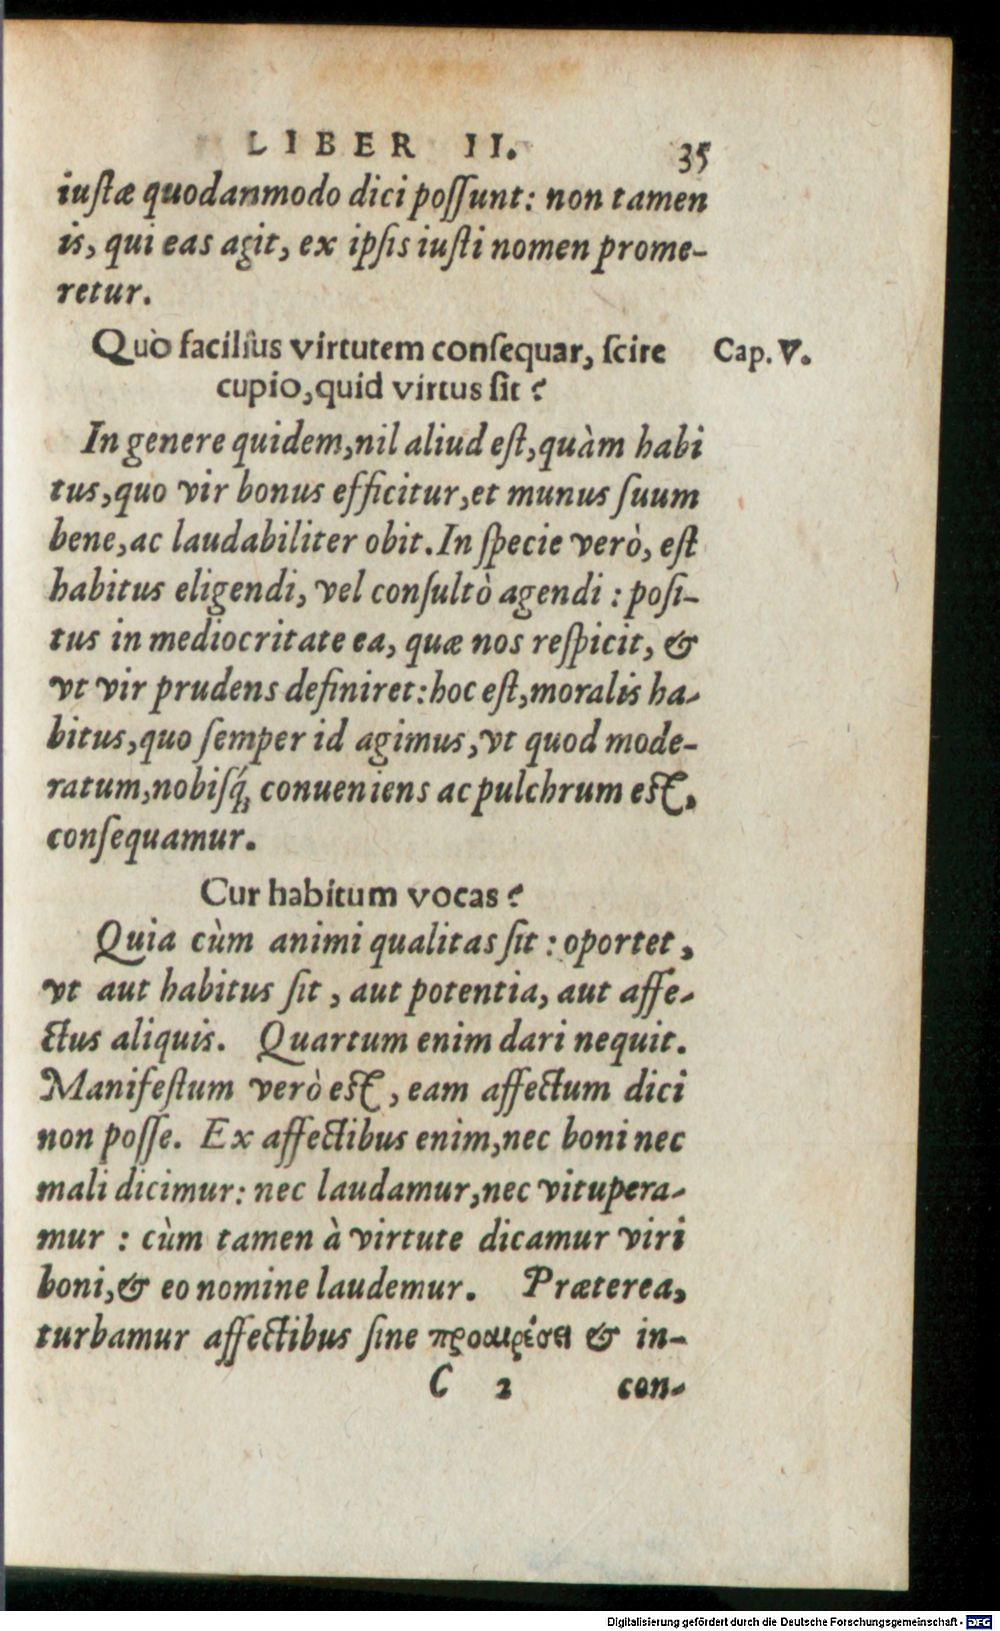 LIBER II. 35
iustæ quodanmodo dici possunt: non tamen
is, qui eas agit, ex ipsis iusti nomen prome-
retur.
Quò faciliùs virtutem consequar, scire Cap. V.
cupio, quid virtus sit?
In genere quidem, nil aliud est, quàm habi
tus, quo vir bonus efficitur, et munus suum
bene, ac laudabiliter obit. In specie verò, est
habitus eligendi, vel consultò agendi: posi-
tus in mediocritate ea, quæ nos respicit, &
vt vir prudens definiret: hoc est, moralis ha-
bitus, quo semper id agimus, vt quod mode-
ratum, nobisq́; conueniens ac pulchrum est,
consequamur.
Cur habitum vocas?
Quia cùm animi qualitas sit: oportet,
vt aut habitus sit, aut potentia, aut affe-
ctus aliquis. Quartum enim dari nequit.
Manifestum verò est, eam affectum dici
non posse. Ex affectibus enim, nec boni nec
mali dicimur: nec laudamur, nec vitupera-
mur: cùm tamen à virtute dicamur viri
boni, & eo nomine laudemur. Præterea,
turbamur affectibus sine προαιρέσει & in-
C 2 con-
Digitalisierung gefördert durch die Deutsche Forschungsgemeinschaft - DFG